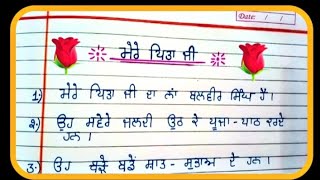 Date: / /
ਮੇਰੇ ਪਿਤਾ ਜੀ
1) ਮੇਰੇ ਪਿਤਾ ਜੀ ਦਾ ਨਾਂ ਬਲਵੀਰ ਸਿੰਘ ਹੈ।
2) ਉਹ ਸਵੇਰੇ ਜਲਦੀ ਉਠ ਕੇ ਪੂਜਾ-ਪਾਠ ਕਰਦੇ
ਹਨ।
3) ਉਹ ਬੜੇ ਸ਼ਾਂਤ-ਸੁਭਾਅ ਦੇ ਹਨ।